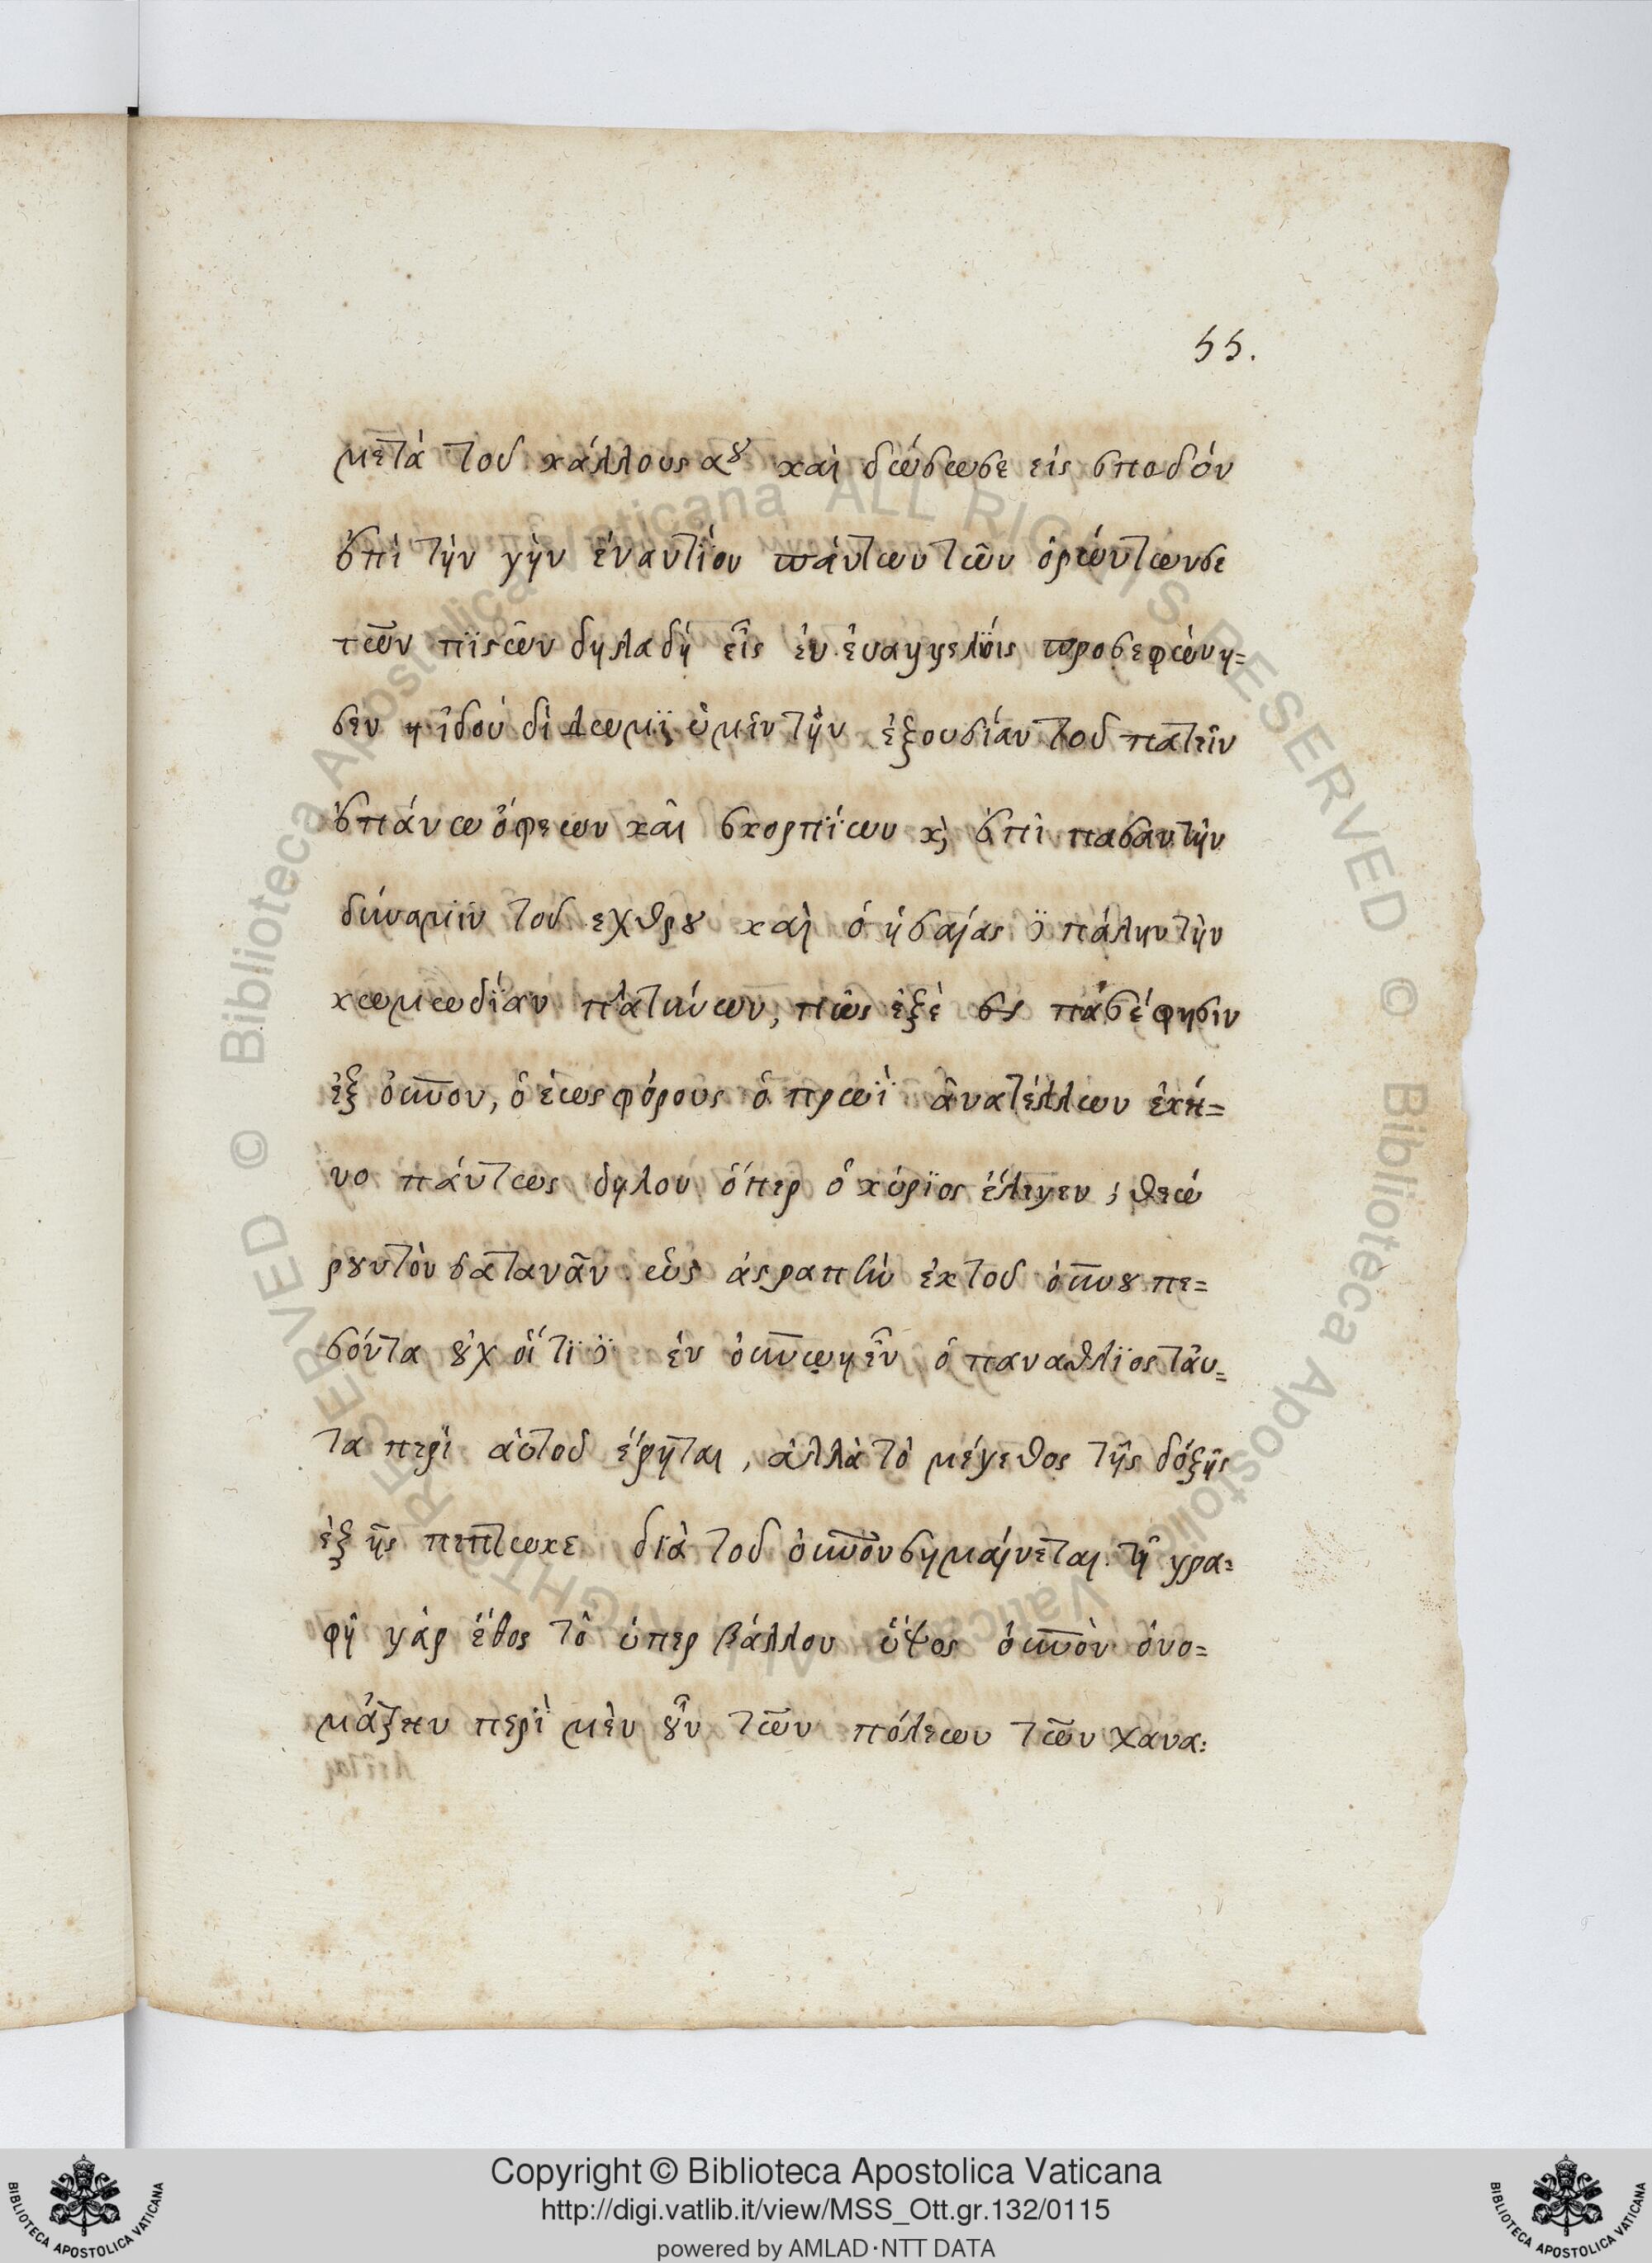 55.
μετὰ τοῦ κάλλους αȣ καὶ δώσωσε εἰς σποδόν
ἐπὶ τὴν γὴν ἐναντίον πάντων τῶν ὁρώντωνσε
τῶν πϊςῶν δηλαδὴ εἷς ἐν ἐυαγγελίοις προσεφώνη=
σεν ἡ ἰδοὺ δίδωμϊ ὑμῖν τὴν ἐξουσίαν τοῦ πατεῖν
ἐπάνω ὄφεων καὶ σκορπΐων κ; ἐπὶ πασαν τὴν
δύναμϊν τοῦ εχθρȣ καὶ ὁ ἡσαίας πάλιν τὴν
κωμωδΐαν πλατύνων, πῶς ἐξέπεσέφησιν
ἐξ ὀυνον, ὁ ἑωςφόρους ὁ πρωῒ ἀνατέλλων ἐκεῖ=
νο πάντως δηλον ὅπερ ὁ κύρϊος ἔλεγεν, θεώ
ρȣντὸν σατανᾶν ὡς ἀςραπὴν ἐκτοῦ ὀυνȣ πε=
σόντα ȣχ ὅτϊ ἐν ὀυνωηἦν ὁ παναθλΐος τἀυ=
τα περὶ ἀυτοῦ ἔρηται, ἀλλὰ τὸ μέγεθος τῆς δόξης
ἐξ ἧς πεπτωκε διὰ τοῦ ὀυνοῦ σημαίνεται. τῇ γρα=
φῇ γὰρ ἔθος τὸ ὑπερ βάλλον ὕψος ὀυνὸν ὀνο=
μάζειν περὶ μὲν ȣν τῶν πόλεων τῶν χανα:
Copyright © Biblioteca Apostolica Vaticana
http://digi.vatlib.it/view/MSS_Ott.gr.132/0115
powered by AMLAD·NTT DATA
BIBLIOTECA APOSTOLICA VATICANA
BIBLIOTECA APOSTOLICA VATICANA
© Biblioteca Apostolica Vaticana ALL RIGHTS RESERVED © Biblioteca Apostolica Vaticana ALL RIGHTS RESERVED